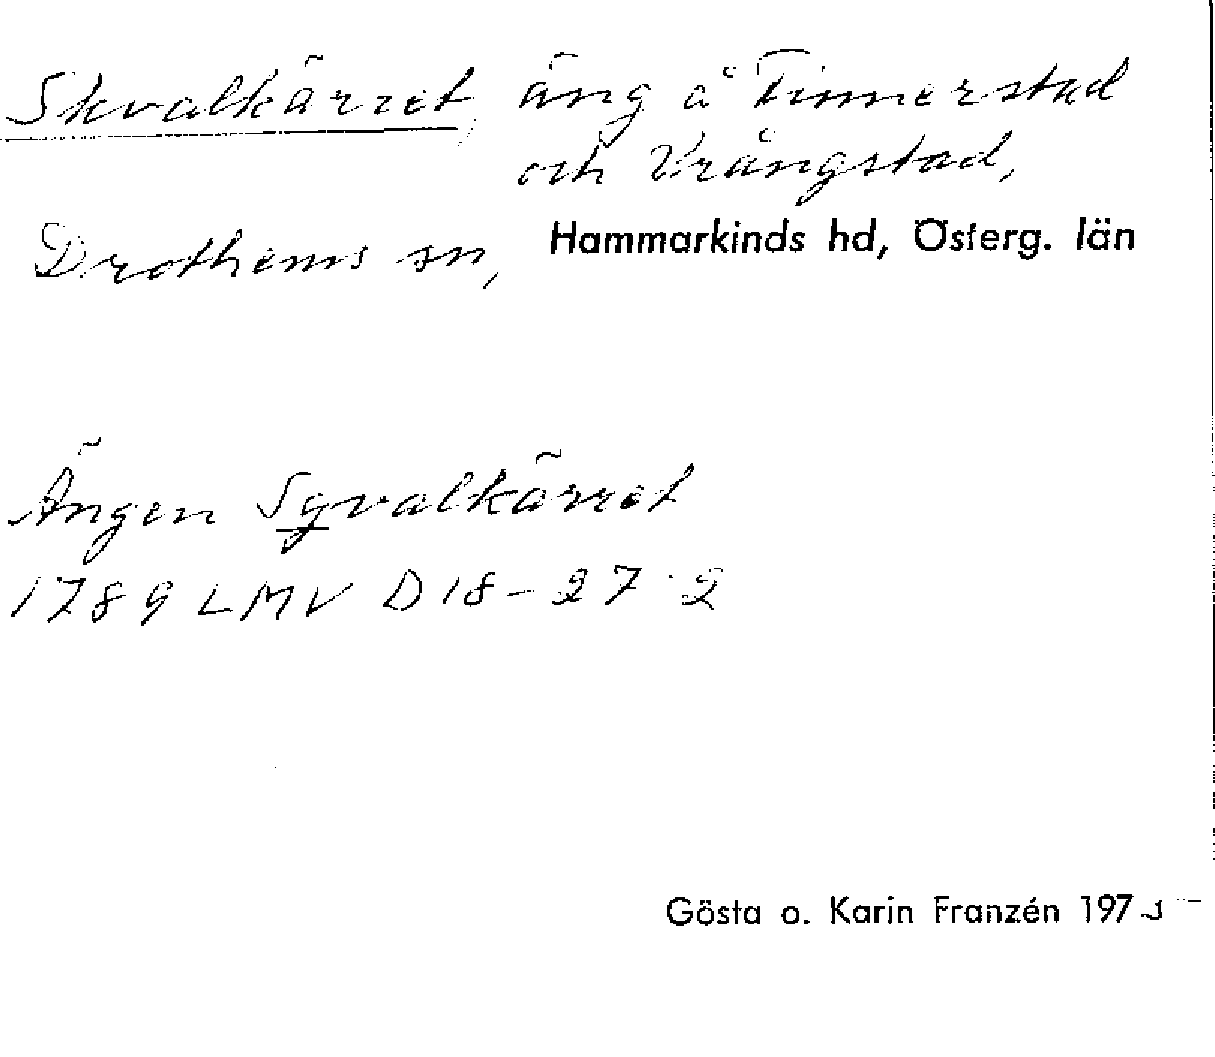 Skvalkärret, äng å Finnerstad
och Vrångstad,
Drothems sn, Hammarkinds hd, Österg. län
Ängen Sqvalkärret
1789 LMV D18-27:2
Gösta o. Karin Franzén 1975